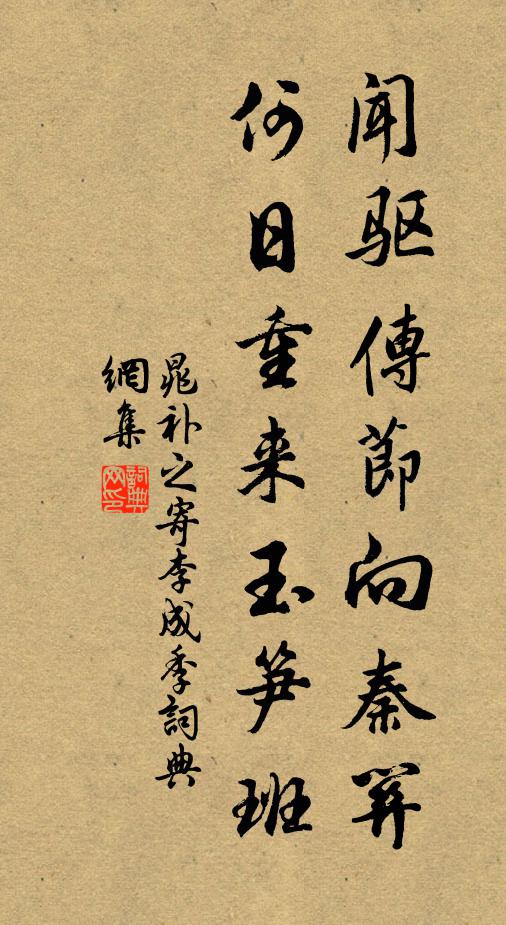 闻驱傳節向秦関
何日重来玉笋班
晁补之寄李成季詞典
網集
詞典網印